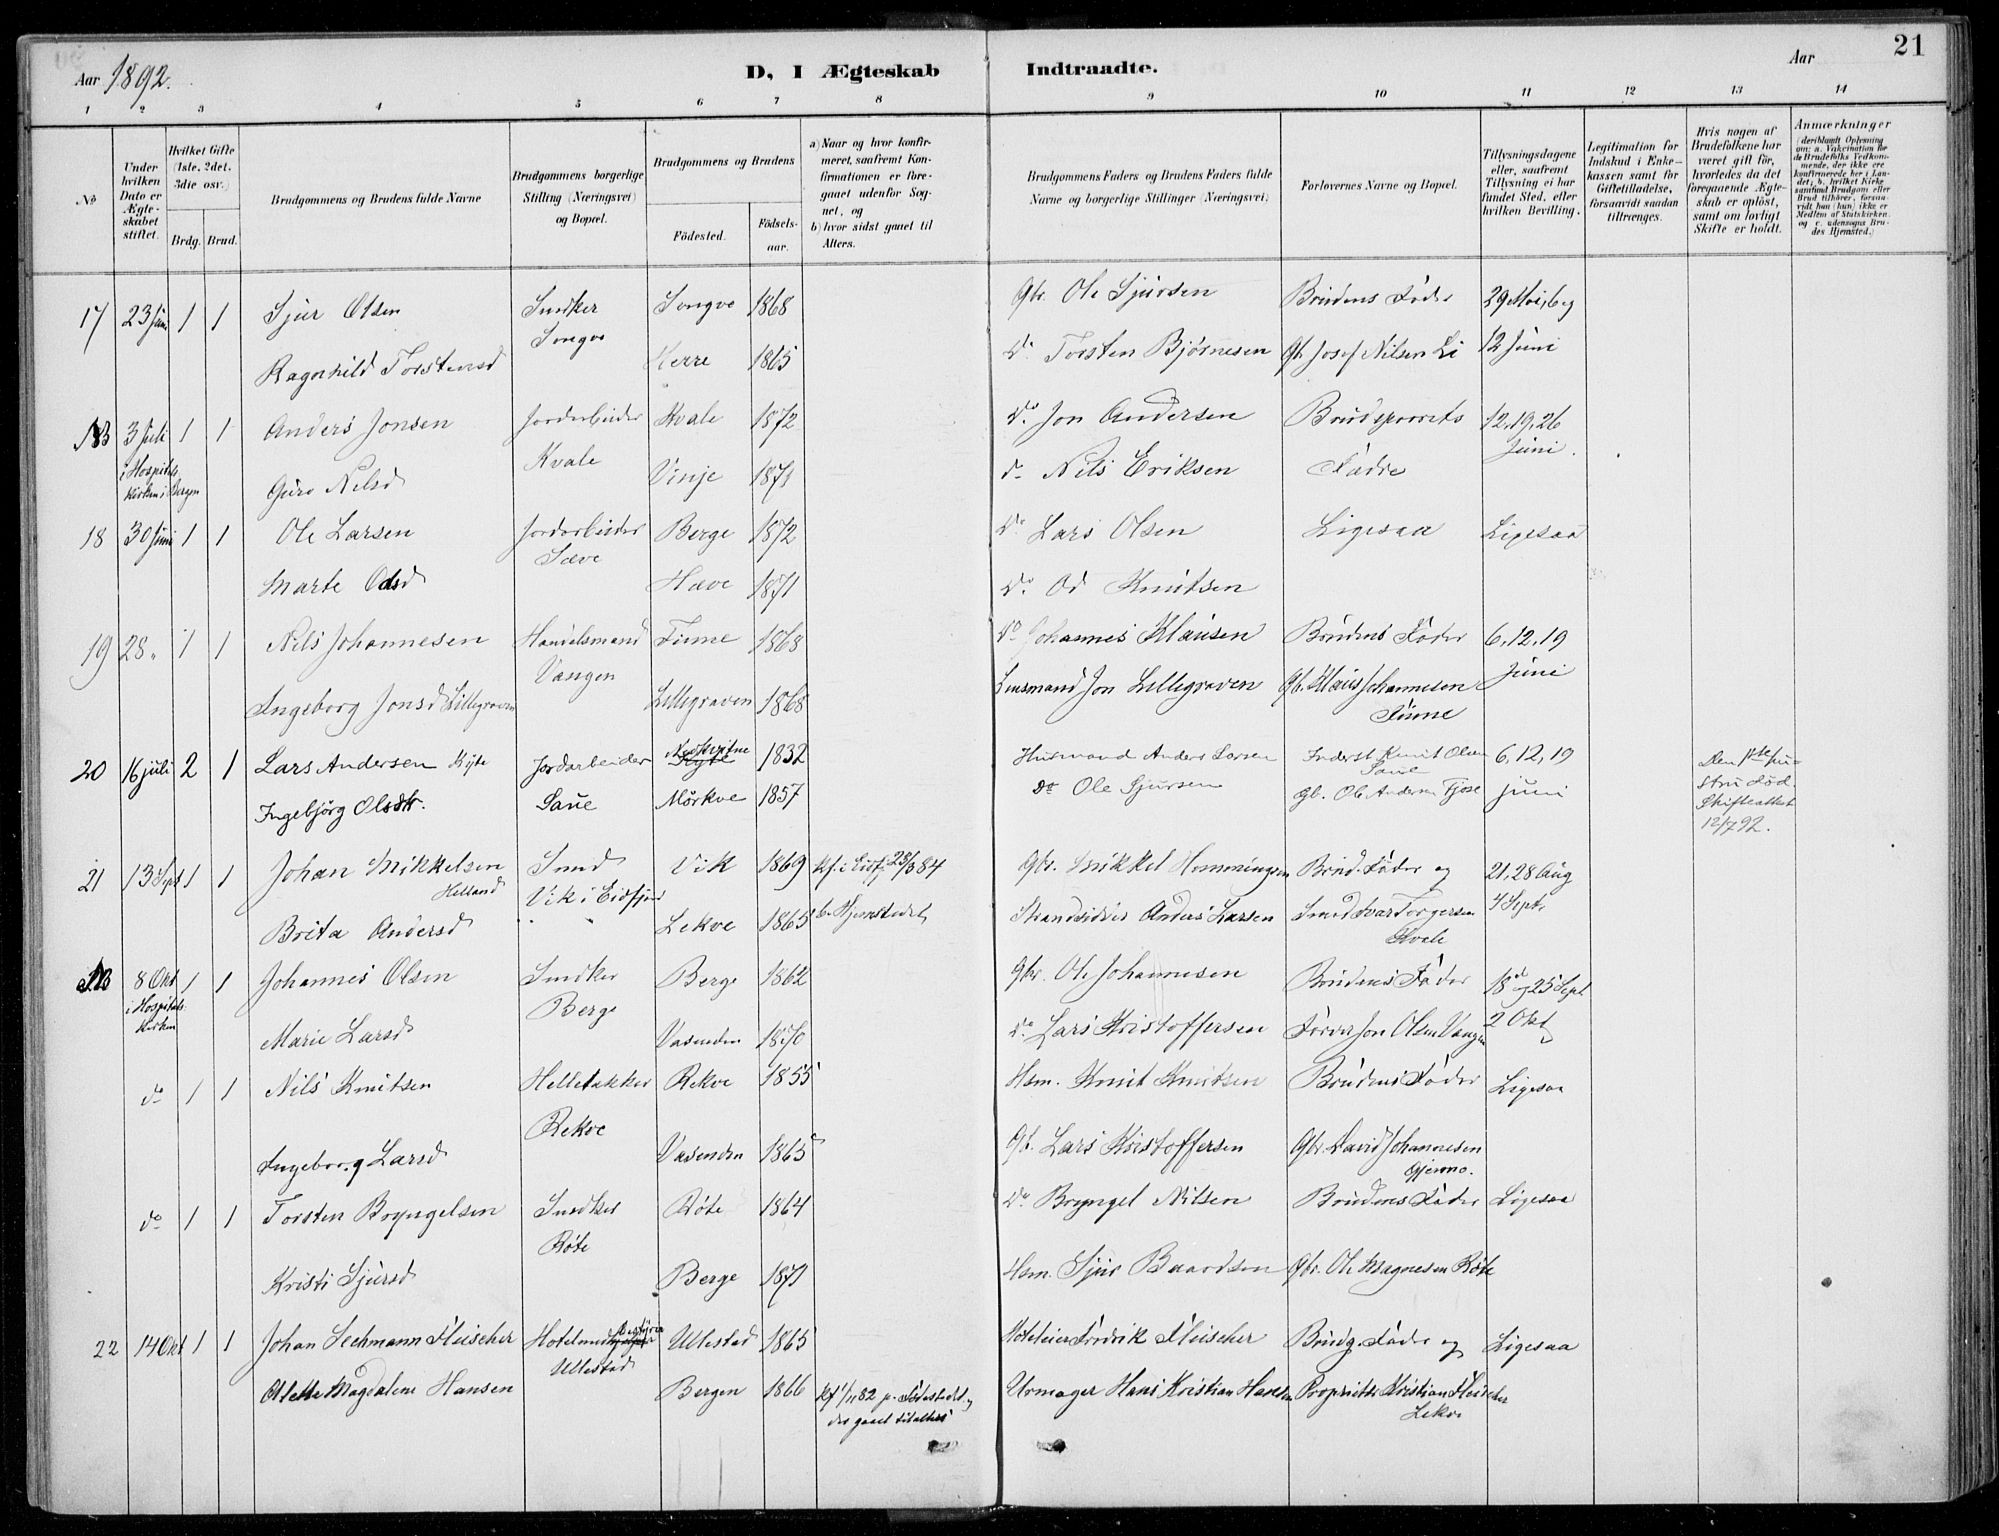 Aar 1892.
D, I Ægteskab Indtraadte.
Aar
21
1 2 3 4 5 6 7 8 9 10 11 12 13 14
No
Under hvilken Dato er Ægteskabet stiftet.
Hvilket Gifte (1ste, 2det, 3die osv.)
Brdg. Brud.
Brudgommens og Brudens fulde Navne
Brudgommens borgerlige Stilling (Næringsvei) og Bopæl.
Brudgommens og Brudens
Fødested.
Fødselsaar.
a) Naar og hvor konfirmeret, saafremt Konfirmationen er foregaaet udenfor Sognet, og
b) hvor sidst gaaet til Alters.
Brudgommens Faders og Brudens Faders fulde Navne og borgerlige Stillinger (Næringsvei)
Forlovernes Navne og Bopæl.
Tillysningsdagene eller, saafremt Tillysning ei har fundet Sted, efter hvilken Bevilling.
Legitimation for Indskud i Enkekassen samt for Giftetilladelse, forsaavidt saadan tiltrænges.
Hvis nogen af Brudefolkene har været gift før, hvorledes da det foregaaende Ægteskab er opløst, samt om lovligt Skifte er holdt.
Anmærkninger (deriblandt Oplysning om: a. Vakcination for de Brudefolks Vedkommende, der ikke ere konfirmerede her i Landet; b. hvilket Kirkesamfund Brudgom eller Brud tilhører, forsaavidt han (hun) ikke er Medlem af Statskirken, og c. udensogns Brudes Hjemsted.)
17 23 Juni 1 1 Sjur Olsen Snedker Songve 1868 Gbr. Ole Sjursen Brudens Fader 29 Mai, 6 og
Songve
Ragnhild Torstensd Herre 1865 Do Torsten Bjørnesen Gb. Josef Nilsen Li 12 Juni
NB 3 Juli 1 1 Anders Jonsen Jordarbeider Kvale 1872 Do Jon Andersen Brudeparrets 12, 19, 26
i Hospitalskirken i Bergen
Kvale
Juni.
Guro Nilsd Vinje 1871 do Nils Eriksen Fædre
18 30 Juni 1 1 Ole Larsen Jordarbeider Berge 1872 Do Lars Olsen Ligesaa Ligesaa
Sæve
Marte Odsd Hæve 1871 Do Od Knutsen
19 28 " 1 1 Nils Johannesen Handelsmand Finne 1868 Do Johannes Klausen Brudens Fader 6, 12, 19
Vangen
Juni
Ingeborg Jonsd Lillegraven Lillegraven 1868 Lensmand Jon Lillegraven Gb. Klaus Johannesen
Finne
20 16 juli 2 1 Lars Andersen Kyte Jordarbeider Kyte 1832 Husmand Anders Larsen Inderst Knut Olsen 6, 12, 19 Den 1ste hu-
Saue
stru død.
Ingebjørg Olsdtr. Saue Mørkve 1857 Do Ole Sjursen Gb. Ole Andersen Tjose juni Skifteattest
12/7 92.
21 13 Sept 1 1 Johan Mikkelsen Smed Vik 1869 Kf. i Eidfj 28/9 84 Gbr. Mikkel Hemmingsen Brud. Fader og 21, 28 Aug
Helland
Vik i Eidfjord
4 Sept.
Brita Andersd Lekve 1865 b. Hjemstedet Strandsidder Anders Larsen Smed Ivar Torgersen
Kvale
NB 8 Okt 1 1 Johannes Olsen Snedker Berge 1862 Gbr. Ole Johannesen Brudens Fader 18de og 25 Sept
i Hospitalskirken
Berge
2 Okt
Marie Larsd Vasenden 1870 Do Lars Kristoffersen Farver Jon Olsen Vangen
do 1 1 Nils Knutsen Helletækker Rekve 1855 Hsm. Knut Knutsen Brudens Fader Ligesaa
Rekve
Ingeborg Larsd Vasenden 1865 Gb. Lars Kristoffersen Gbr. David Johannesen
Gjerme.
do 1 1 Torsten Bryngelsen Snedker Røte 1864 Do Bryngel Nilsen Brudens Fader Ligesaa
Røte
Kristi Sjursd Berge 1871 Hsm. Sjur Baardsen Gbr. Ole Magnesen Røte
22 14 Okt 1 1 Johan Sechmann Fleischer Hotel bestyrer Ullestad 1865 Hoteleier Fredrik Fleischer Brudg. Fader og Ligesaa
Ullestad
Olette Magdalene Hansen Bergen 1866 Kf 1/11 82 p. Fødestedet og Urmager Hans Kristian Hansen Proprietær Kristian Fleischer
der gaaet til alters
Lekve